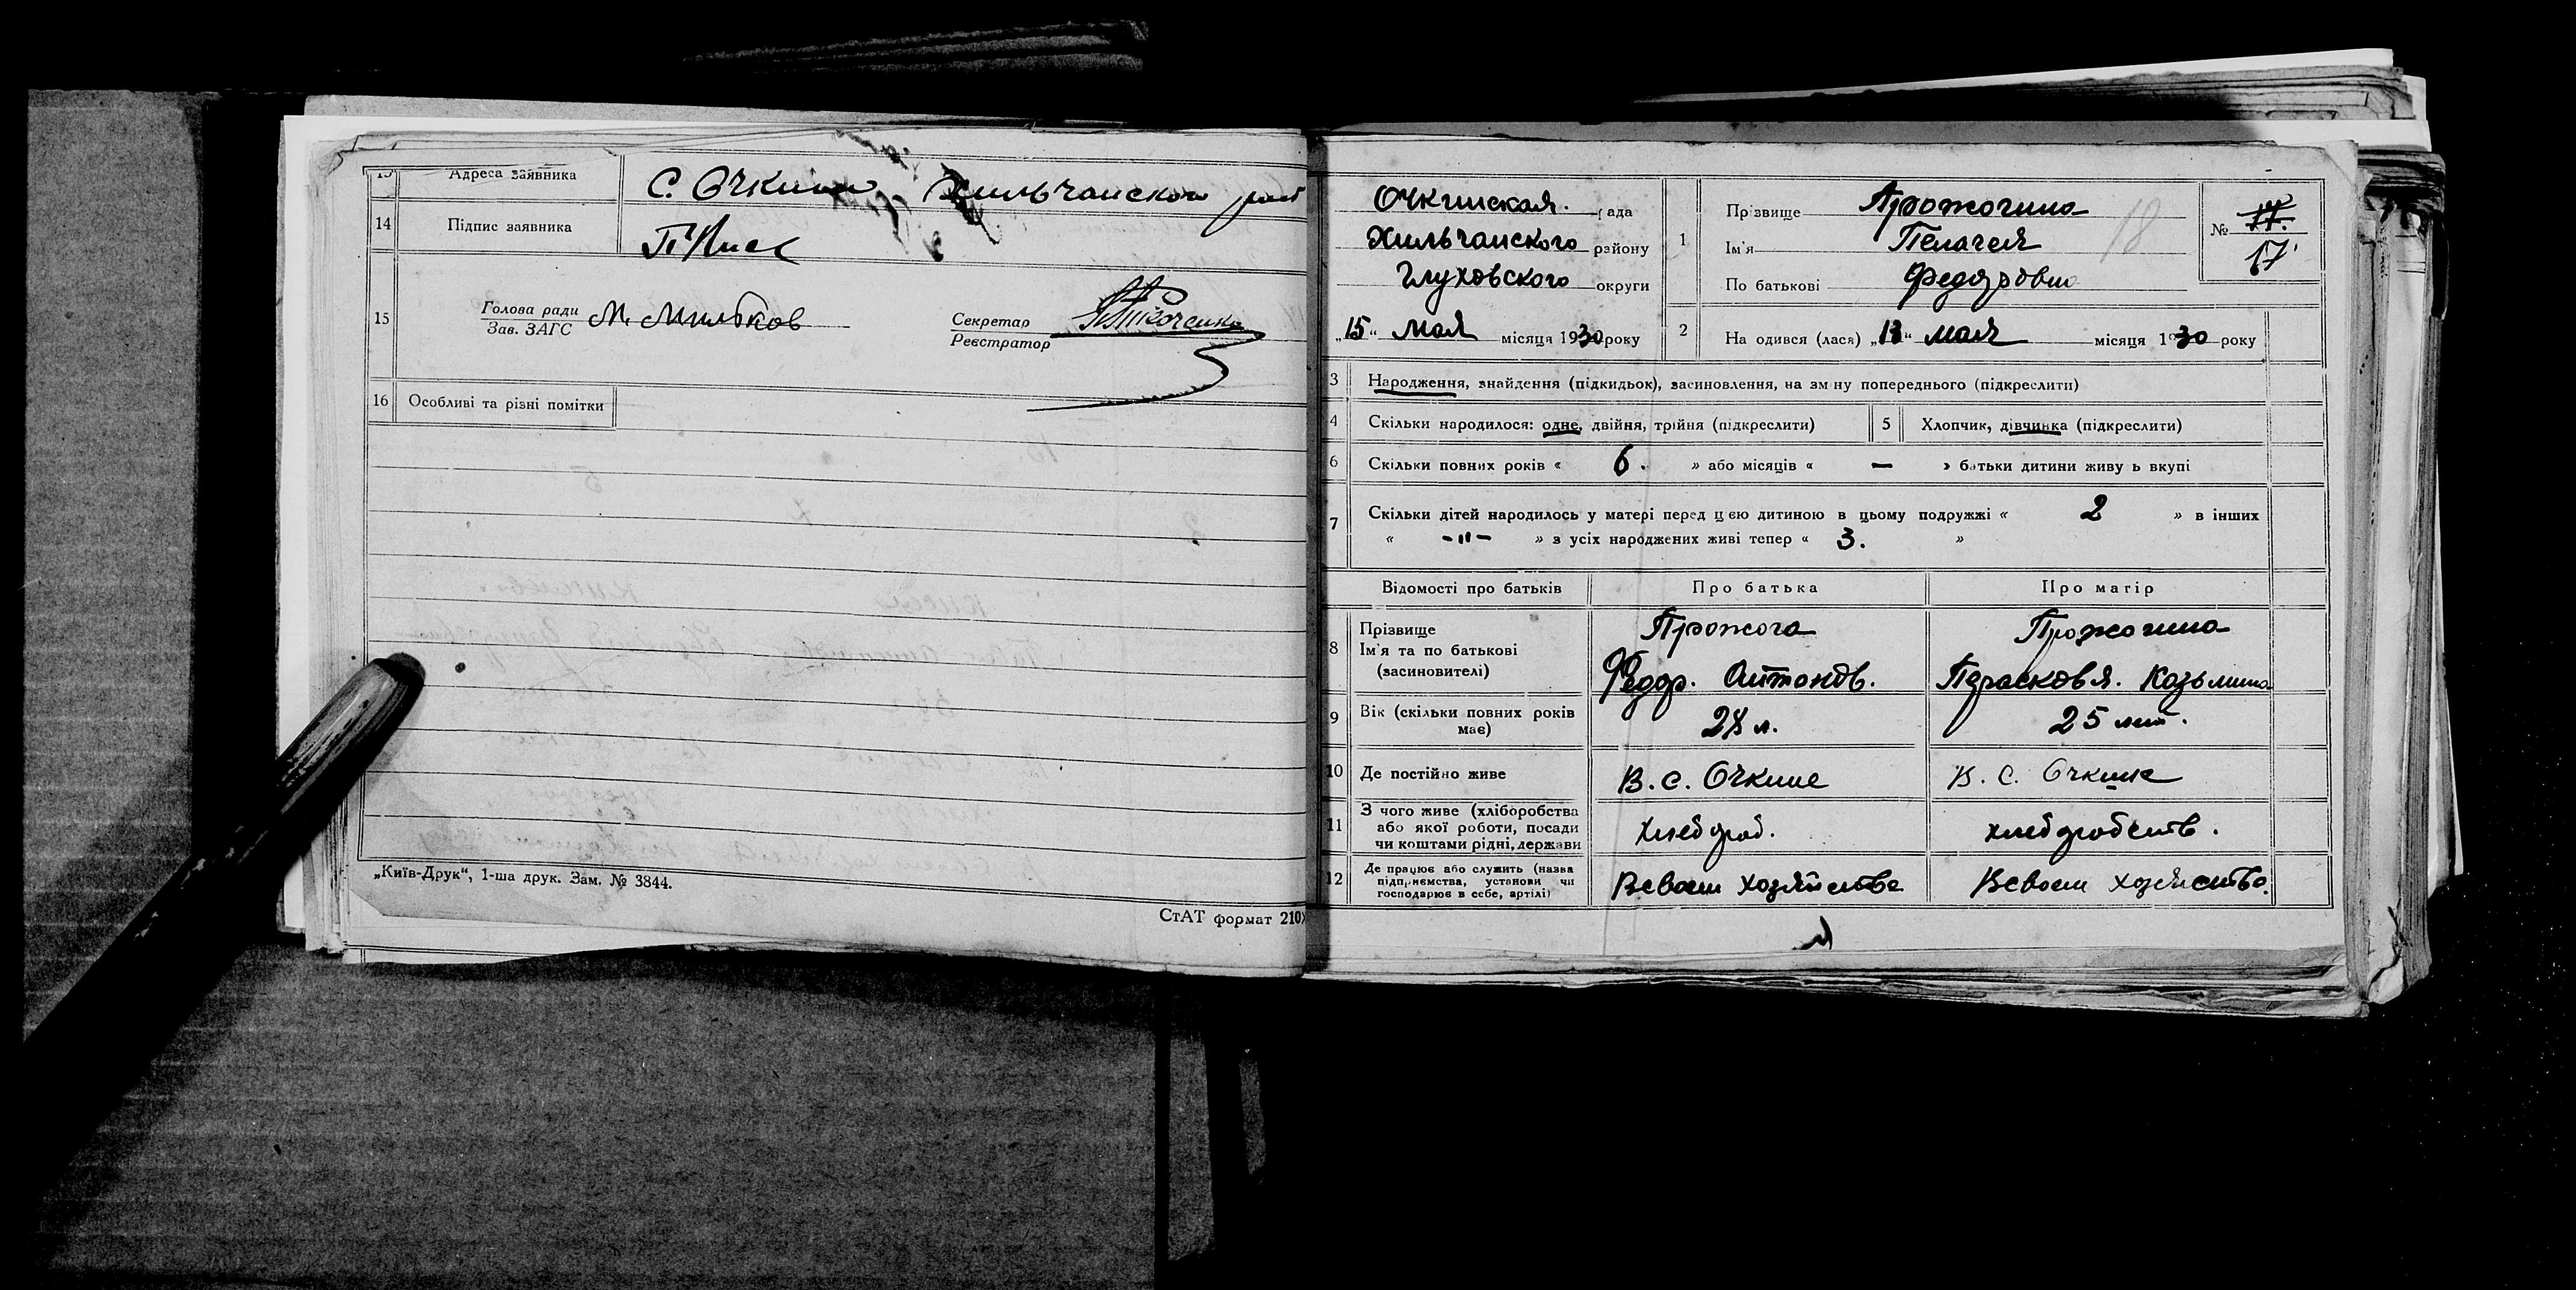 Адреса заявника С. Очкино, Хильчанского
14 Підпис заявника
15 Голова ради
Зав. ЗАГС М. Мильков Секретар
Реєстратор
16 Особливі та різні помітки
„Київ-Друк“, 1-ша друк. Зам. № 3844.
СтАТ формат 210
Очкинская. рада
Хильчанского району
Глуховского округи
„15“ мая місяця 1930 року
1 Прізвище Прожогина
Ім'я Пелагея
По батькові Федоровна
18
№ 17.
17
2 На одився (лася) „13“ мая місяця 1930 року
3 Народження, знайдення (підкидьок), засиновлення, на зм ну попереднього (підкреслити)
4 Скільки народилося: одне, двійня, трійня (підкреслити) 5 Хлопчик, дівчинка (підкреслити)
6 Скільки повних років « 6. » або місяців « — » батьки дитини живу ь вкупі
7 Скільки дітей народилось у матері перед цією дитиною в цьому подружжі « 2 » в інших
« -"- » з усіх народжених живі тепер « 3. »
Відомості про батьків Про батька Про матір
8 Прізвище
Ім'я та по батькові
(засиновителі) Прожога Прожогина
Федор. Антонов. Парасковя. Козьмина
9 Вік (скільки повних років
має) 28 л. 25 лет.
10 Де постійно живе В. с. Очкине В. с. Очкине
11 З чого живе (хліборобства
або якої роботи, посади
чи коштами рідні, держави хлебороб. хлеборобств.
12 Де працює або служить (назва
підприємства, установи чи
господарює в себе, артілі) Всвоем хозяйстве Всвоем хозяйство.